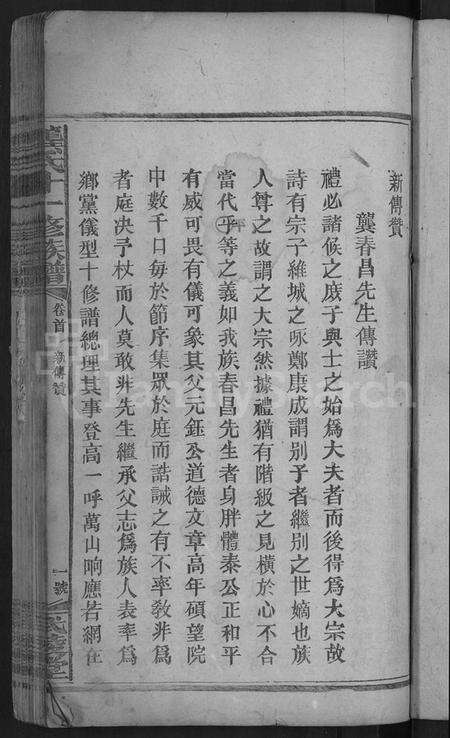 新傳贊
龔春昌先生傳讚
禮必諸候之庶子與士之始爲大夫者而後得爲大宗故
詩有宗子維城之咏鄭康成謂別子者繼別之世嫡也族
人尊之故謂之大宗然據禮猶有階級之見橫於心不合
當代平等之義如我族春昌先生者身胖體泰公正和平
有威可畏有儀可象其父元鈺公道德文章高年碩望院
中數千口毎於節序集眾於庭而誥誡之有不率教非爲
者庭決予杖而人莫敢非先生繼承父志爲族人表率爲
鄉黨儀型十修譜總理其事登高一呼萬山响應若網在
龔氏十一修族譜
卷首
新傳贊
一號